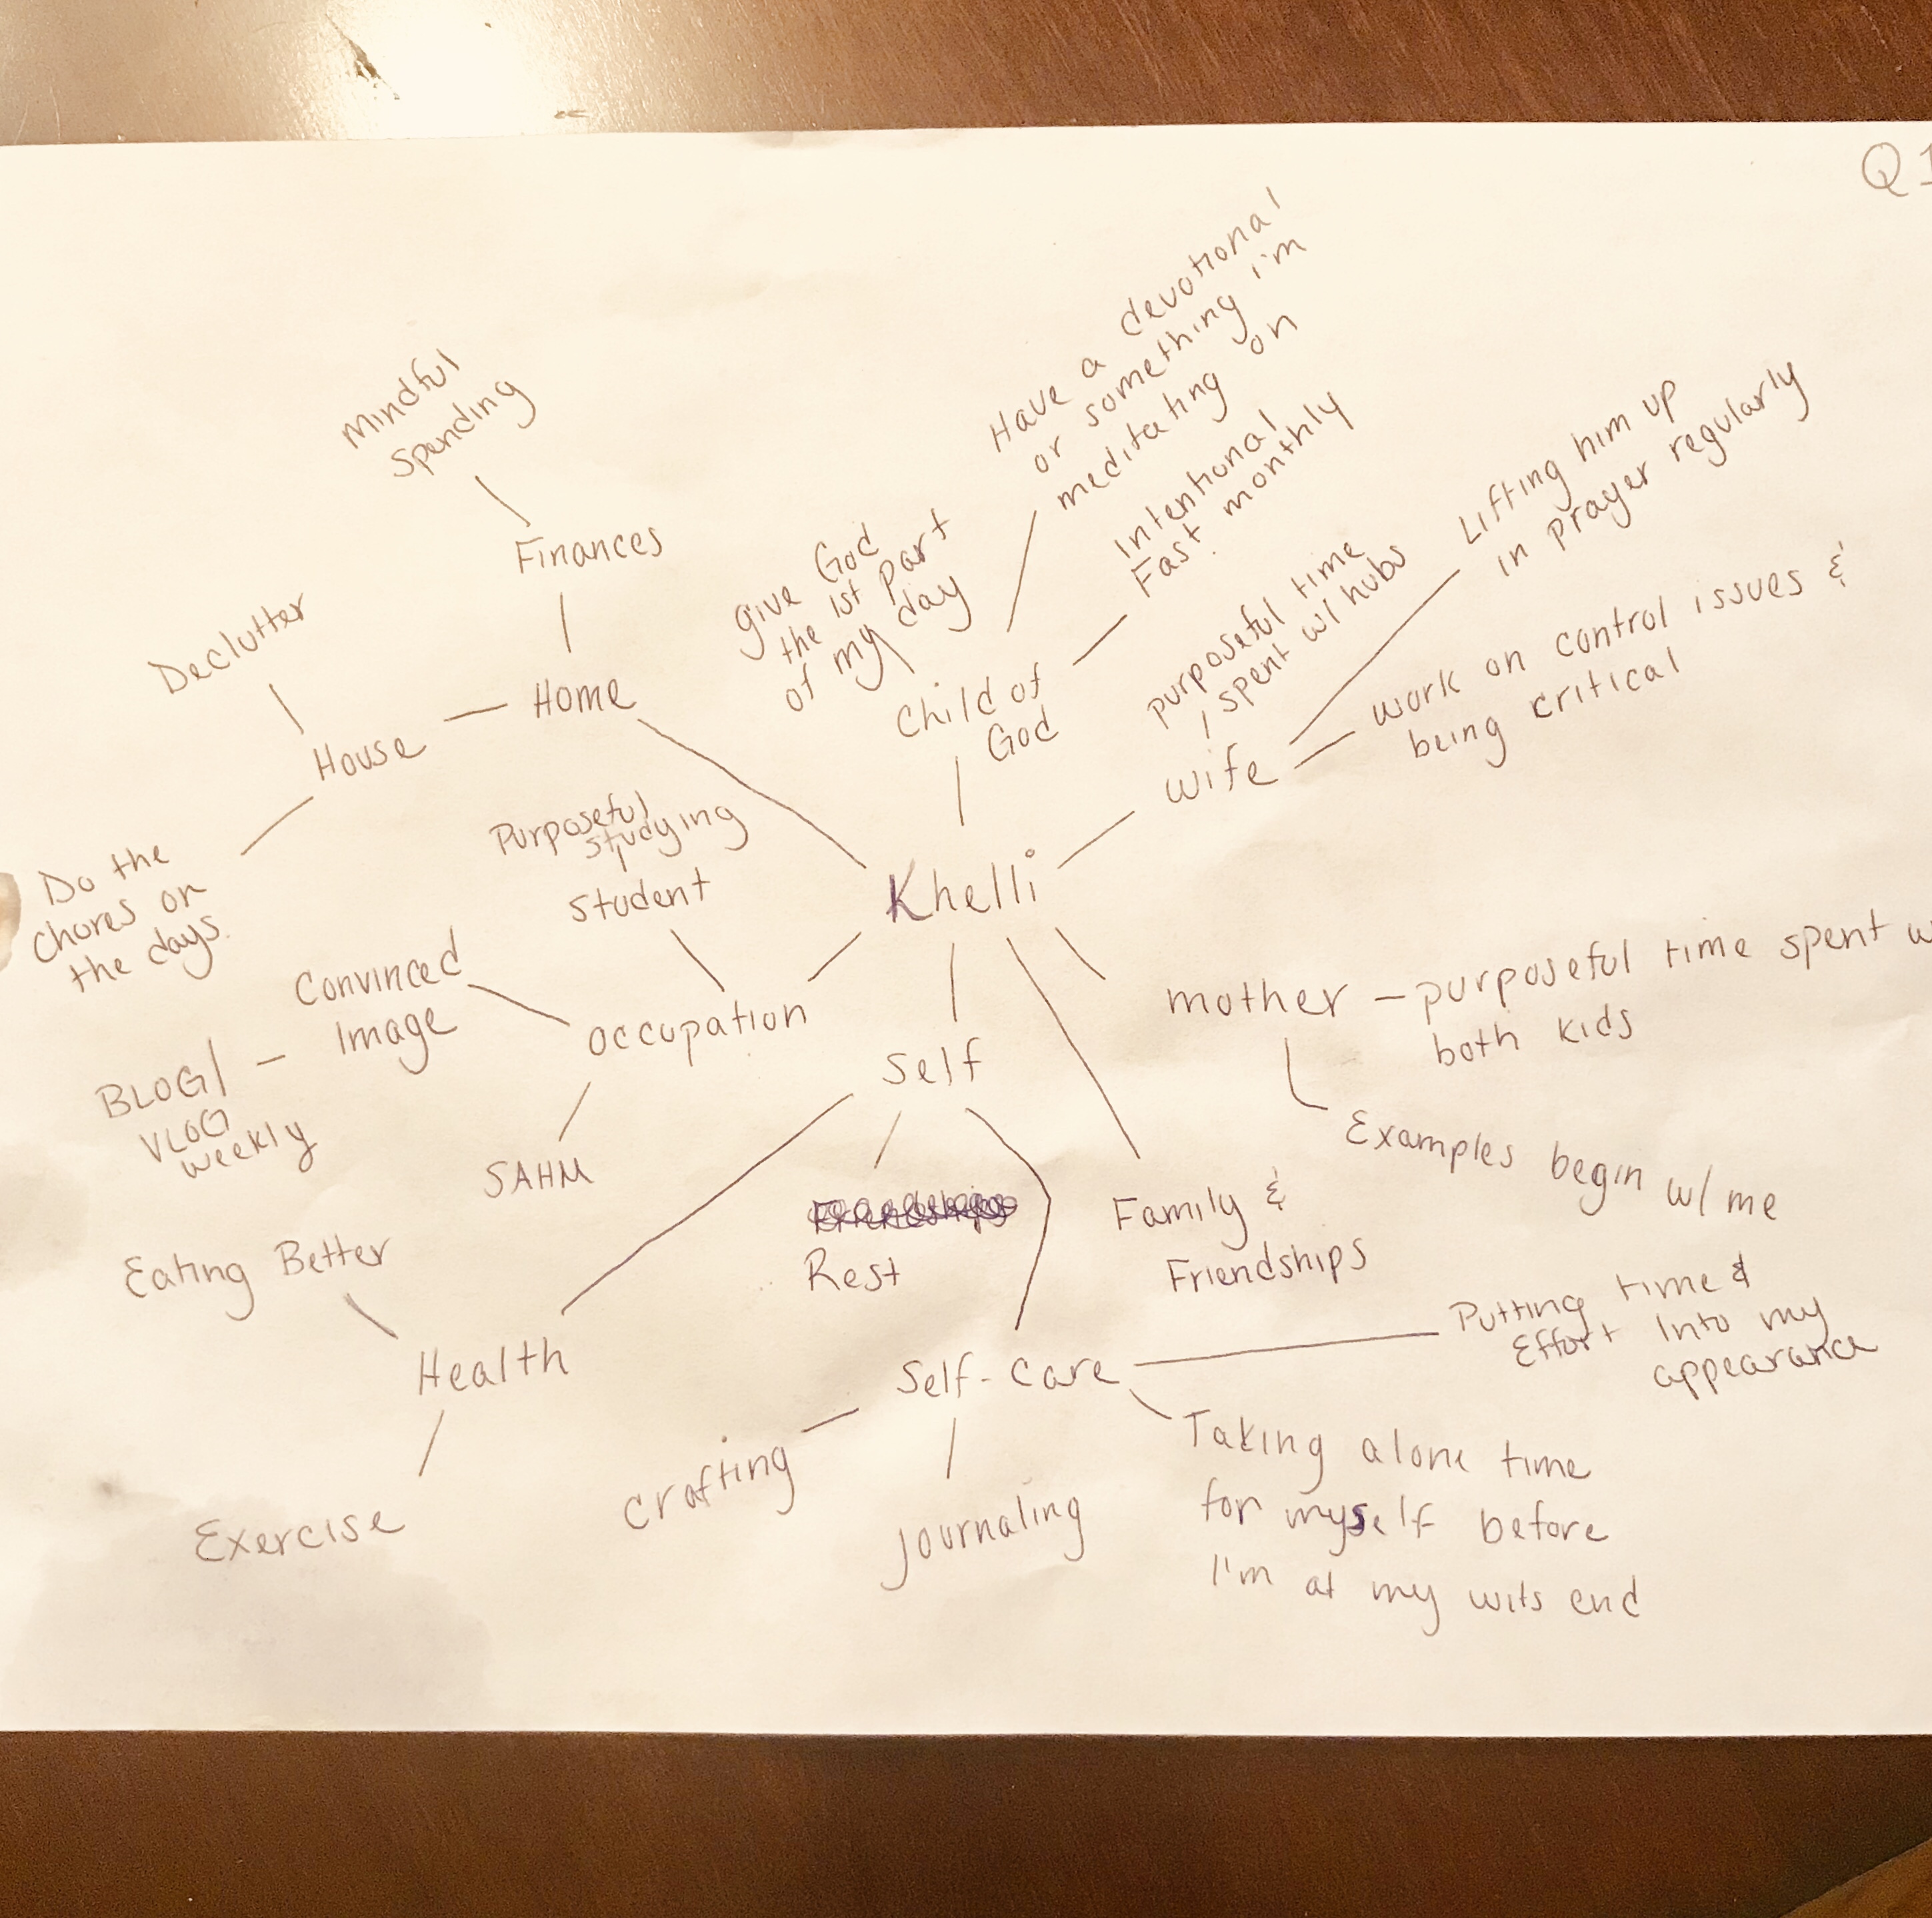 Q1
Have a devotional
or something i'm
meditating on
Intentional
Fast monthly
give God
the 1st part
of my day
Child of
God
purposeful time
spent w/ hubs
Lifting him up
in prayer regularly
work on control issues &
being critical
wife
Mindful
Spending
Finances
Declutter
Home
House
Do the
chores on
the days.
Purposeful
studying
Student
Khelli
Convinced
Image
BLOG/
VLOG
weekly
occupation
SAHM
mother – purposeful time spent w
both kids
Examples begin w/ me
Self
Friendships
Rest
Family &
Friendships
Eating Better
Health
Exercise
Self-Care
Putting time &
Effort Into my
appearance
Crafting
Journaling
Taking alone time
for myself before
I'm at my wits end